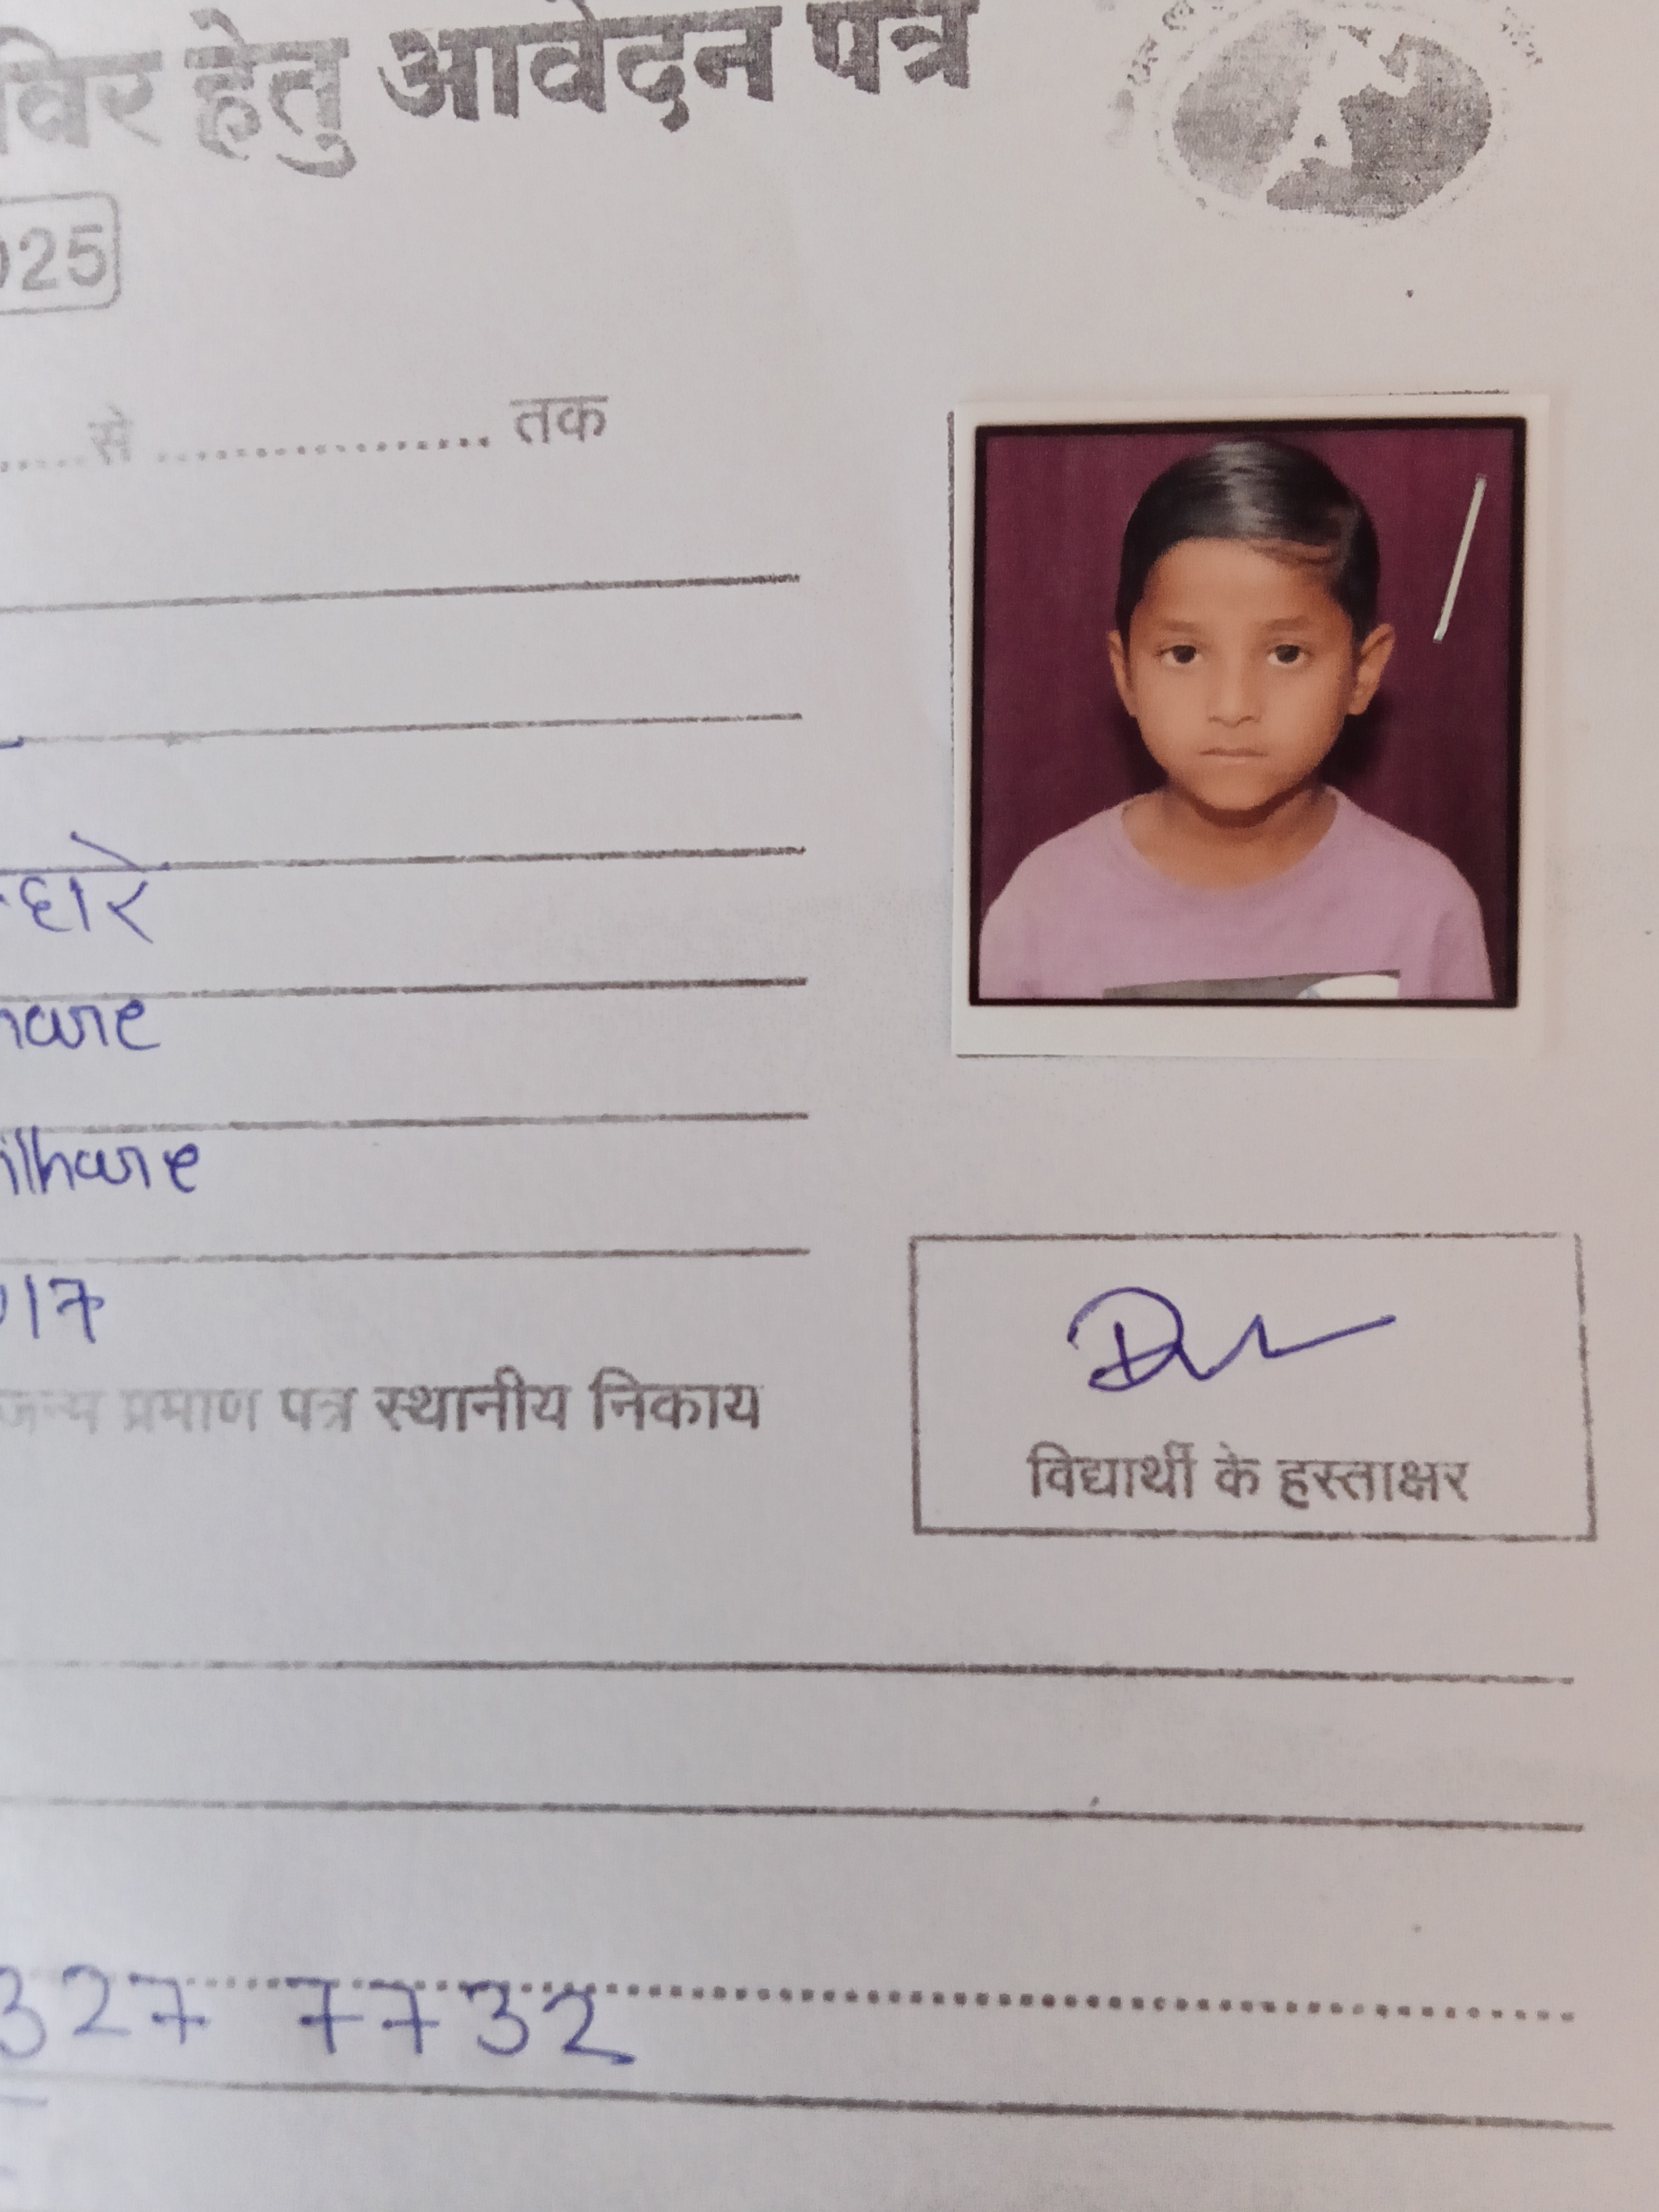 हेतु आवेदन पत्र
025
से ................ तक
हारे
hare
lhare
17
जन्म प्रमाण पत्र स्थानीय निकाय
विद्यार्थी के हस्ताक्षर
327 7732